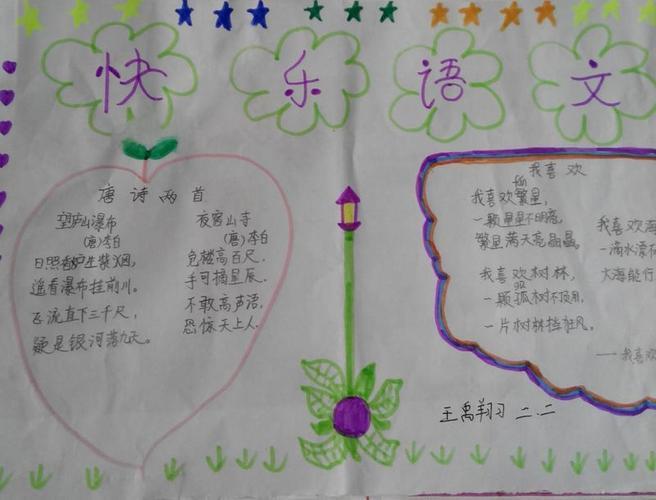 快 乐 语 文
唐诗两首
望庐山瀑布
(唐)李白
日照香炉生紫烟,
遥看瀑布挂前川。
飞流直下三千尺,
疑是银河落九天。
夜宿山寺
(唐)李白
危楼高百尺,
手可摘星辰。
不敢高声语,
恐惊天上人.
我喜欢
我喜欢繁星,
一颗星星不明亮,
繁星满天亮晶晶。
我喜欢树林,
一颗孤树不顶用,
一片树林挡狂风。
我喜欢海
一滴水漂
大海能行
——我喜欢
王禹翔习 二.二